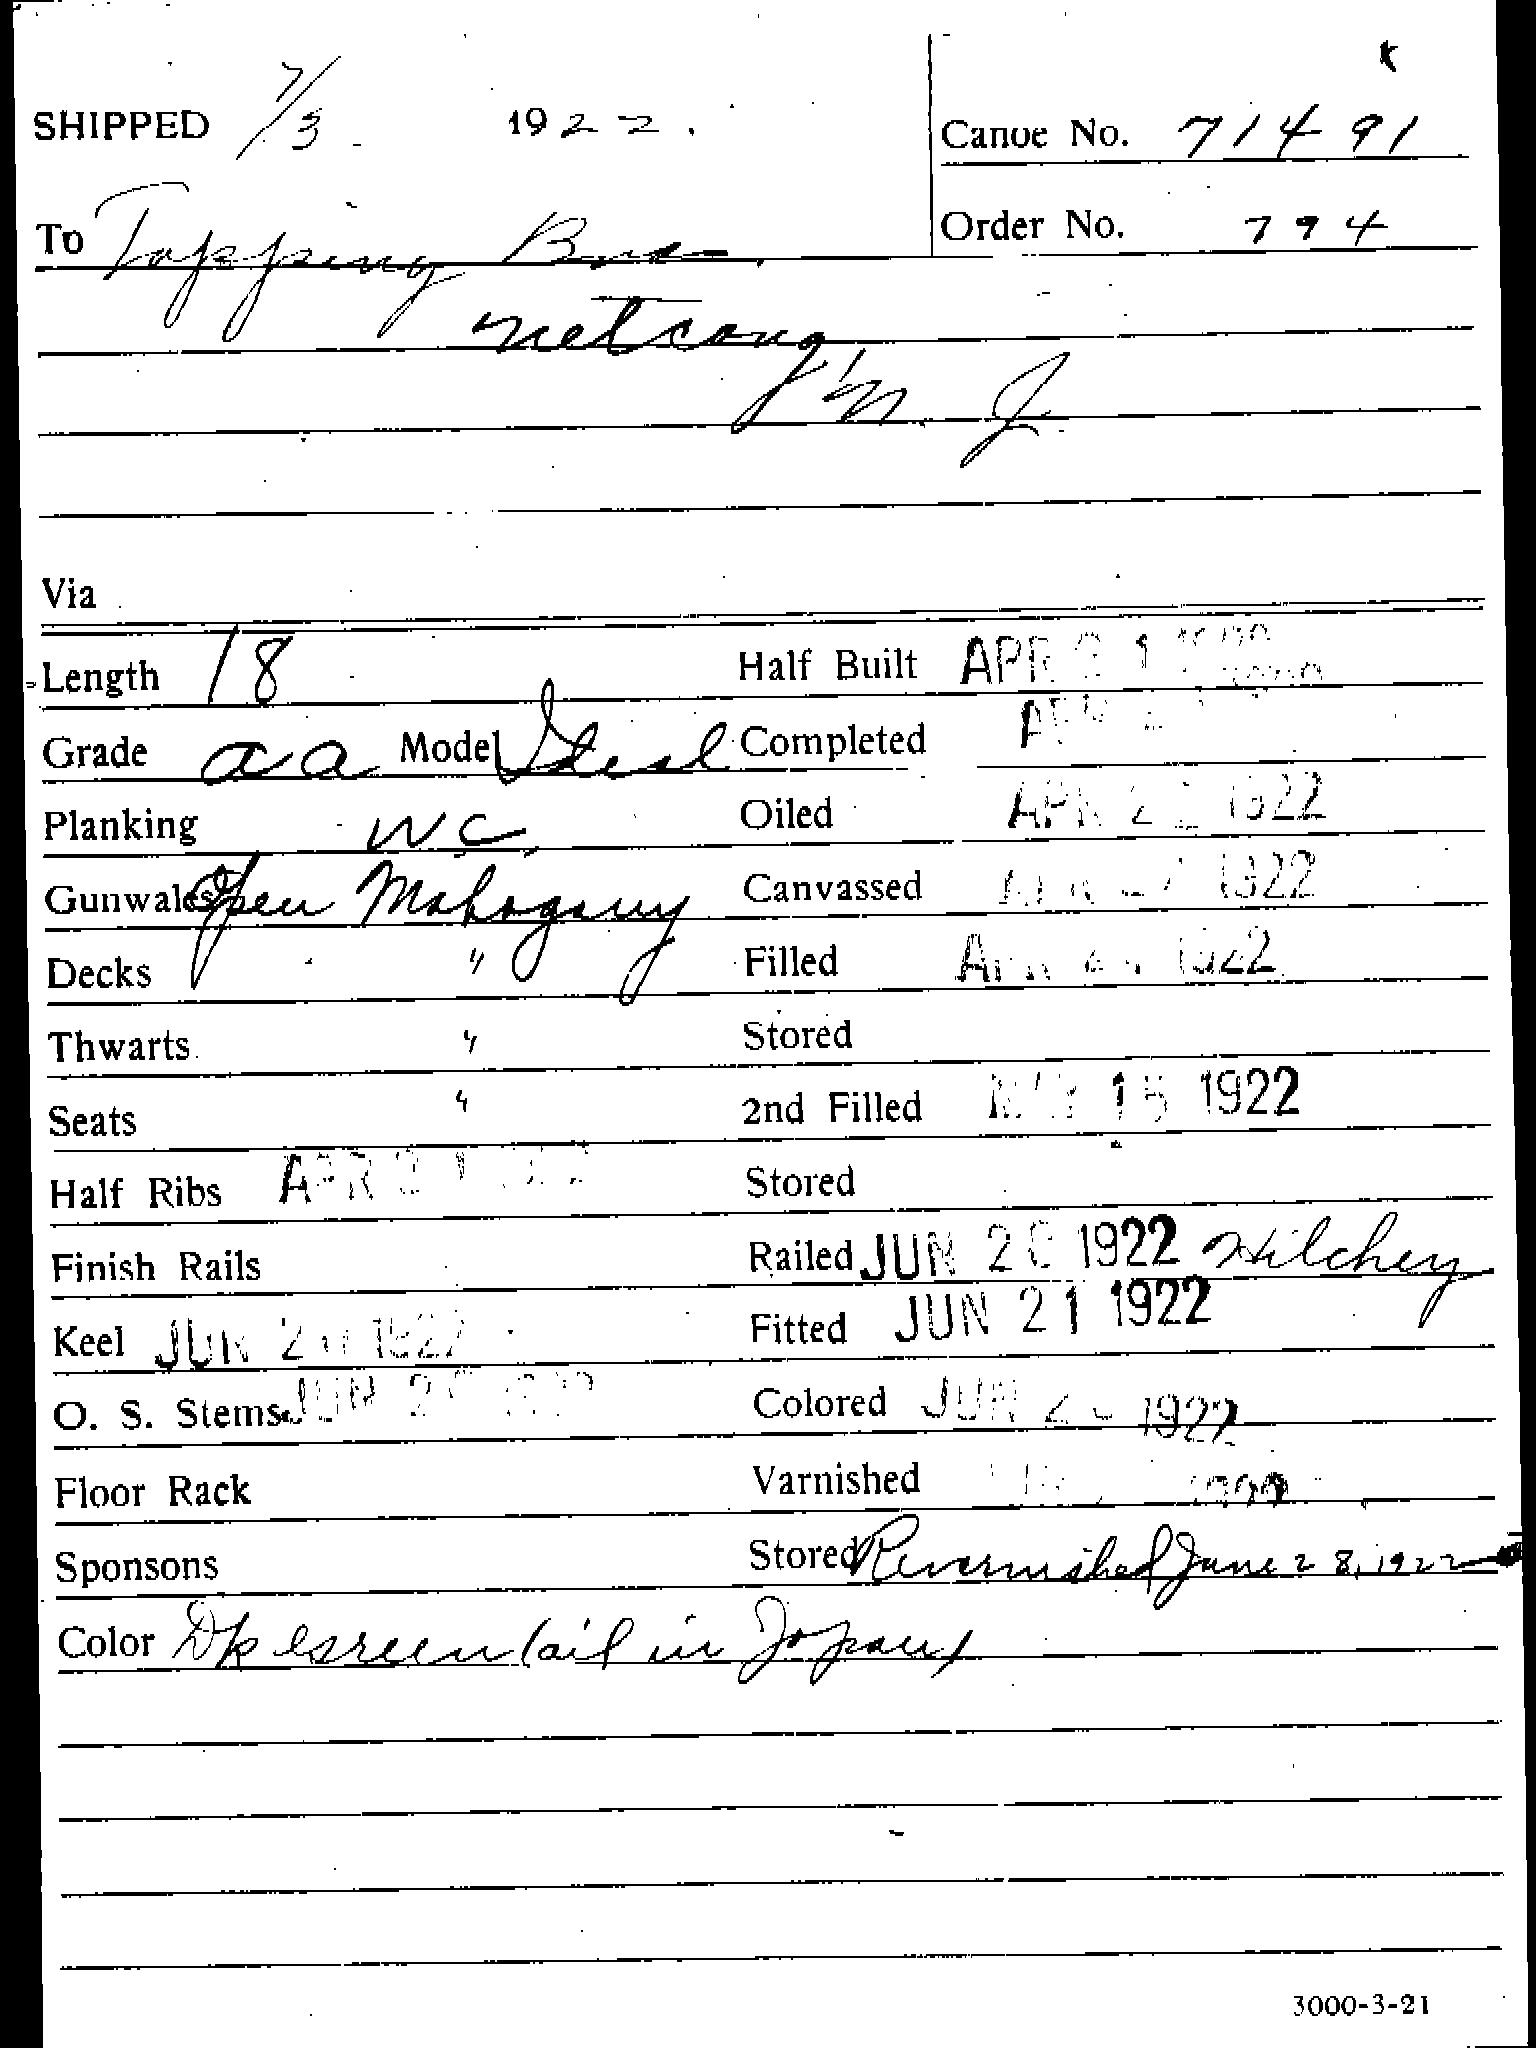 SHIPPED 7/3 1922.
Canoe No. 71491
To Topping Bros.
Order No. 794
Netcong
N. J.
Via
Length 18 Half Built APR 21
Grade aa Model Ideal Completed
Planking W C Oiled APR 1922
Gunwales Open Mahogany Canvassed 1922
Decks " Filled 1922
Thwarts " Stored
Seats " 2nd Filled MAY 15 1922
Half Ribs APR 21 Stored
Finish Rails Railed JUN 20 1922 Hilchey
Keel JUN 20 1922 Fitted JUN 21 1922
O. S. Stems JUN 20 1922 Colored JUN 1922
Floor Rack Varnished
Sponsons Stored Revarnished June 28, 1922
Color Dk Green (oil in Japan)
3000-3-21